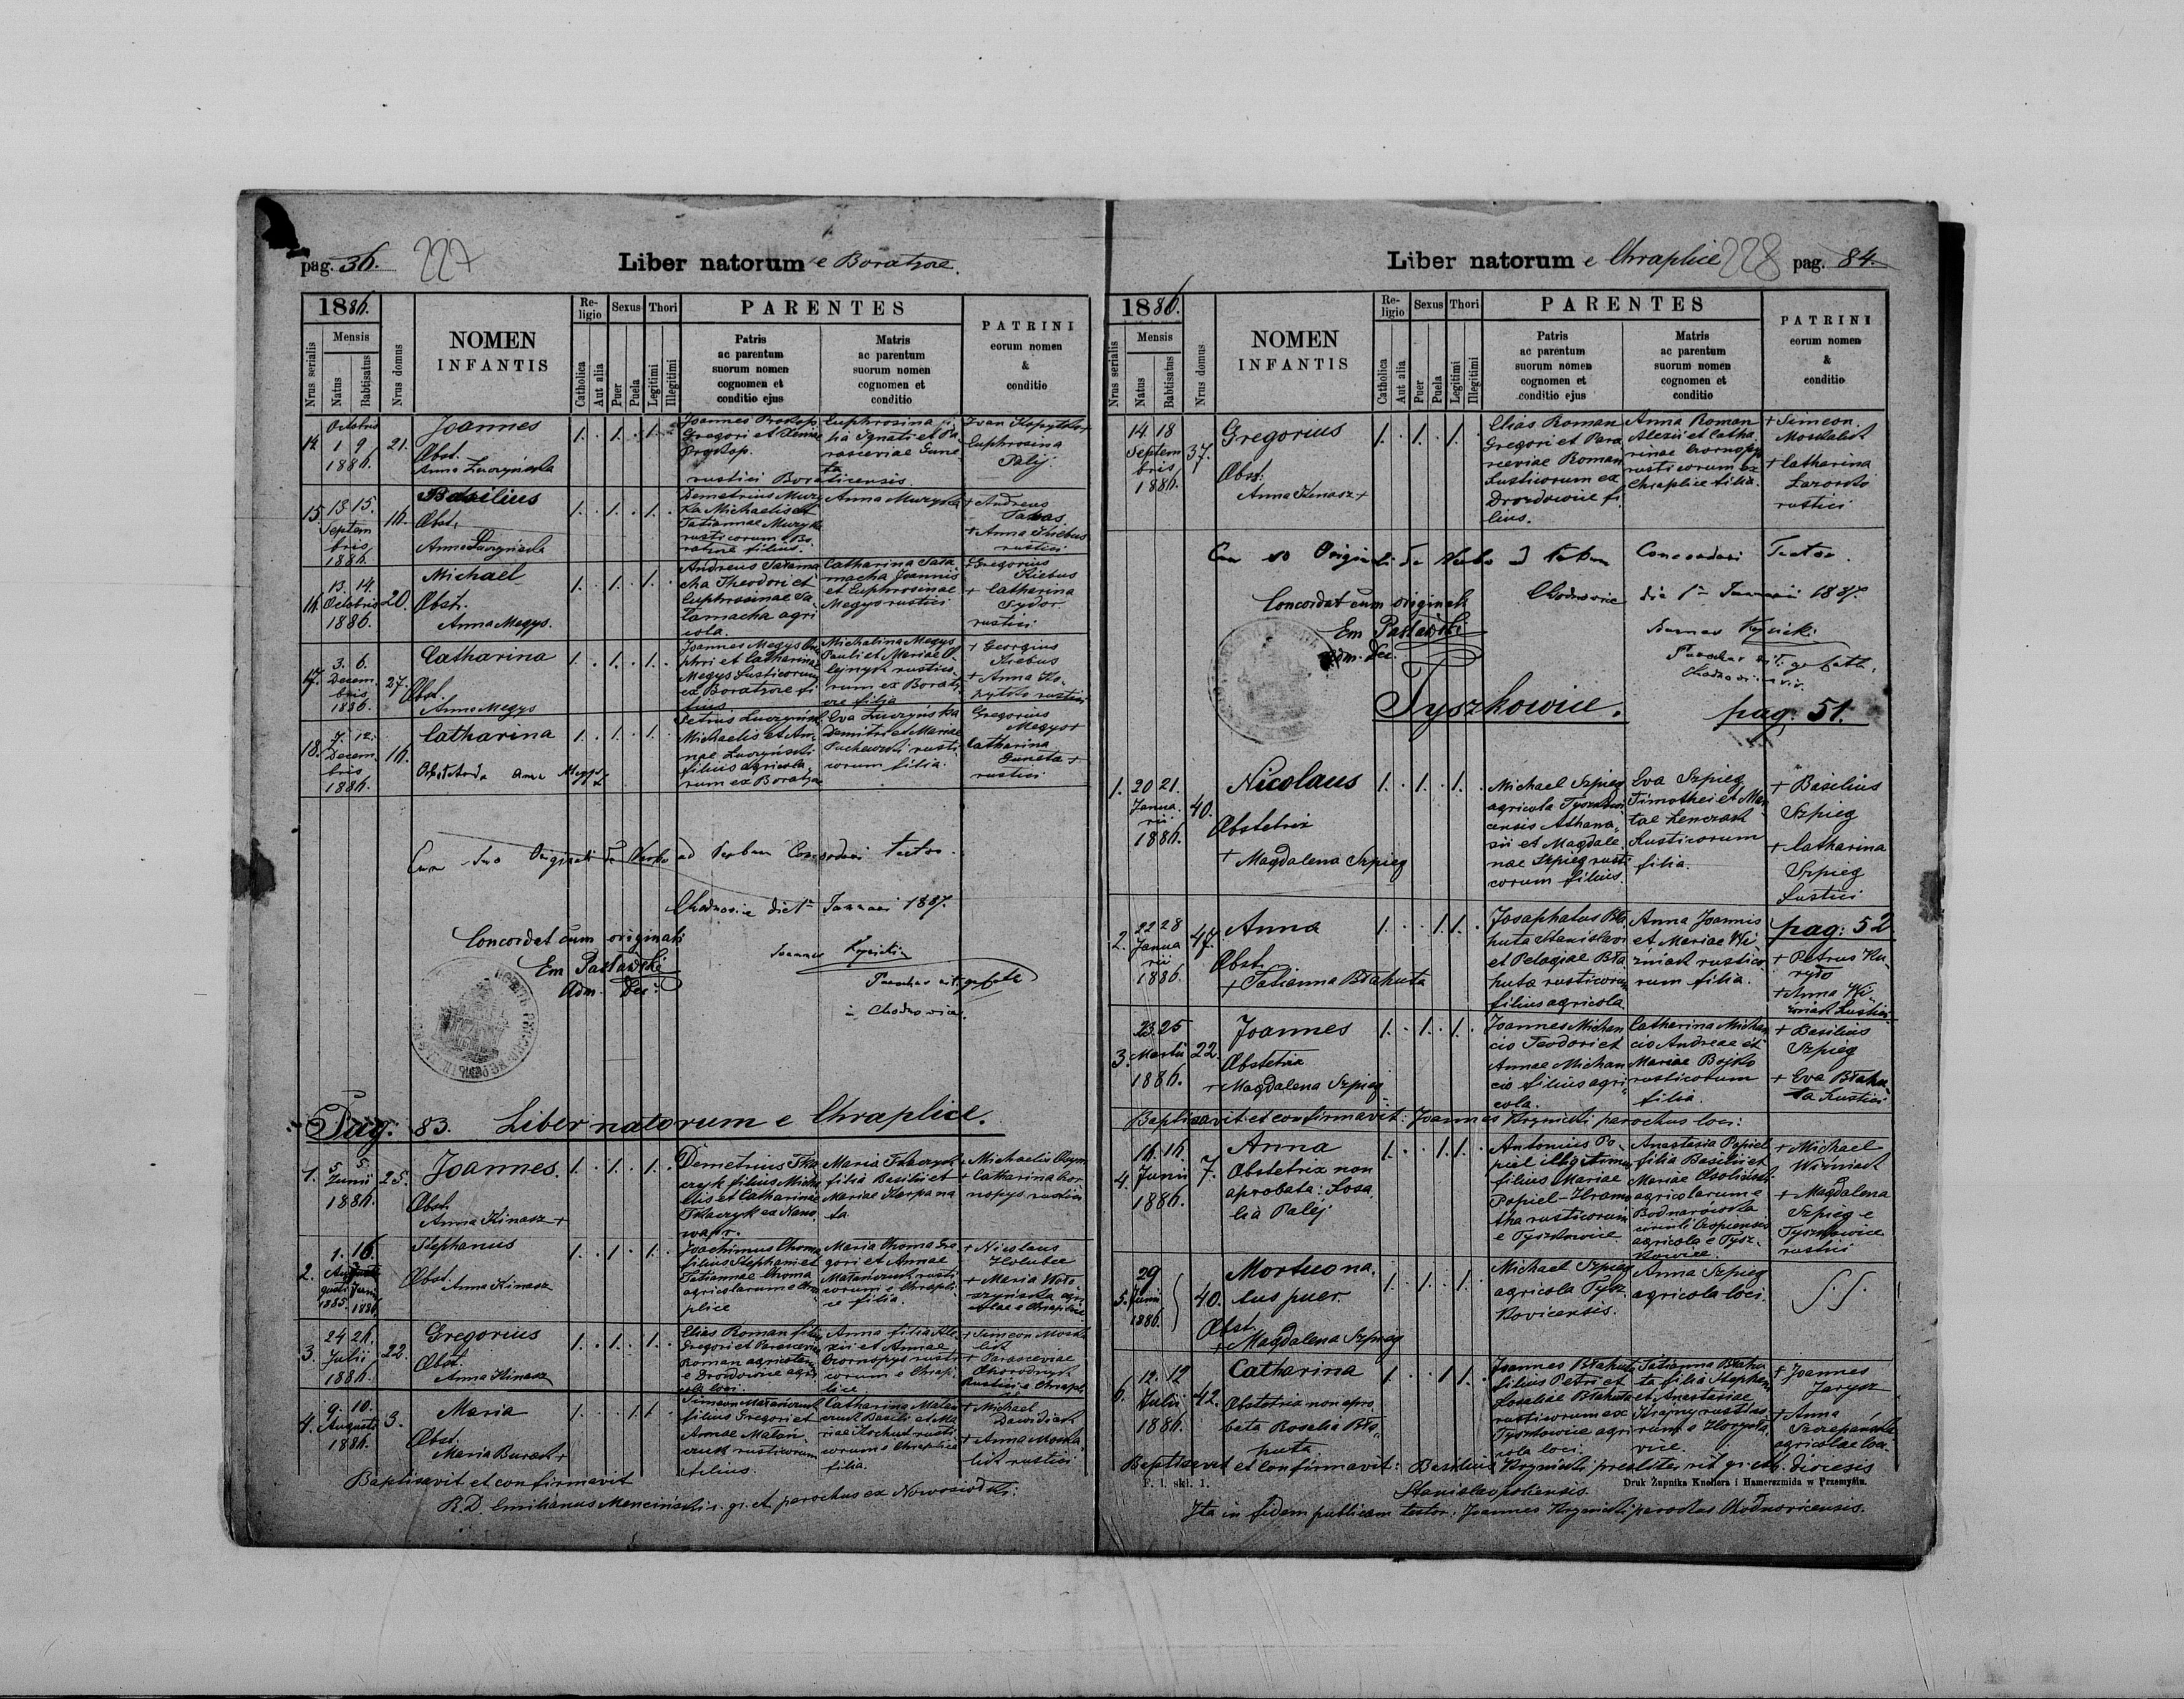 pag. 36. 227
Liber natorum e Boratycze.
1886.
Nrus serialis
Mensis
Natus
Babtisatus
Nrus domus
NOMEN
INFANTIS
Religio
Catholica
Aut alia
Sexus
Puer
Puela
Thori
Legitimi
Illegitimi
PARENTES
Patris
ac parentum
suorum nomen
cognomen et
conditio ejus
Matris
ac parentum
suorum nomen
cognomen et
conditio
PATRINI
eorum nomen
&
conditio
14. Octobris
1 9
1886.
21.
Joannes
Obst.
1. 1. 1.
Joannes Prokop
Gregori et Xeniae
Prokop.
Euphrosina fi
lia Ignati et Pa
rasceviae Gune
ta
rustici Boraticensis.
Euphrosina
Palij
15. 13. 15.
Septem
bris
1886.
16.
Basilius
Obst.
1. 1. 1.
Demetrius Muzy
ka Michaelis et
Tatiannae Muzyka
rusticorum e Bo
filius.
Anna Muzyka
+ Andreas
+ Anna Kiebus
rustici
16. 13. 14.
Octobris
1886.
20.
Michael
Obst.
Anna Megys.
1. 1. 1.
Andreas Tatama
cha Theodori et
Euphrosinae Ta
tamacha agri
cola.
Catharina Tata
macha Joannis
et Euphrosinae
Megys rustici
+ Gregorius
Kiebus
+ Catharina
Sydor
rustici
17. 3. 6.
Decem
bris
1886.
27.
Catharina
Obst.
Anna Megys
1. 1. 1.
Joannes Megys
et Catharinae
Megys rusticorum
ex Boratycze fi
lius
Michalina Megys
Pauli et Mariae O
lejnyk rustico
rum ex Boraty
cze filia
+ Georgius
Kiebus
+ Anna Ko
pytko rustici
18. 7. 12.
Decem
bris
1886.
16.
Catharina
Anna Megys
1. 1. 1.
Petrus Luczyński
Michaelis et An
nae Luczyński
filius agricola
rum ex Boratycze
Eva Luczyńska
Demitri et Mariae
rusti
corum filia.
Gregorius
Megys +
Catharina
Guneta +
rustici
Cum suo Originali de Verbo ad Verbum Concordari testor.
Chodnovice die 1 Januari 1887.
Concordat cum originali
Em Pasławski
Adm. Dec.
Joannes Krynicki
Parochus rit. gr. cath
in Chodnovice.
Pag: 83. Liber natorum e Chraplice.
1. 5 5
Junii
1886.
25.
Joannes.
Obst.
Anna Kinasz +
1. 1. 1.
Demetrius Tka
czyk filius Micha
elis et Catharinae
Tkaczyk ex Nano
Maria Tkaczyk
filia Basilii et
Mariae
+ Catharina Czor
nopys rustici
2. 1. 16.
Augusti Junii
1885. 1886
Stephanus
Obst.
Anna Kinasz
1. 1. 1.
Joachimus Choma
filius Stephani et
Tatiannae Choma
agricolarum e Chra
plice
Maria Choma Gre
gori et Annae
Matańczuk rusti
corum e Chrapli
ce filia.
+ Nicolaus
Holubec
+ Maria Woło
szyńska agri
colae e Chraplice
3. 24 26.
Julii
1886.
22.
Gregorius
Obst.
Anna Kinasz
1. 1. 1.
Elias Roman filius
Gregori et Parasceviae
Roman agricolarum
e Drozdowice agri
cola loci.
Anna filia Ale
xii et Annae
Czornopys rusti
corum e Chrap
lice.
+ Simeon Moska
lik
+ Parasceviae
rustici e Chraplice
4. 9. 10.
Augusti
1886.
3.
Maria
Obst.
Maria Burech +
1. 1. 1.
Simeon Matańczuk
filius Gregori et
Annae Matań
czuk rusticorum
filius.
Catharina Matań
czuk Basili et Ma
riae rusti
corum e Chraplice
filia.
+ Michael
Dawidiak
+ Anna Moska
lik rustici
Baptisavit et confirmavit
R.D. Emilianus Menciński r. gr. ct. parochus ex Nowosiołki.
Liber natorum e Chraplice 228 pag. 84.
1886.
Nrus serialis
Mensis
Natus
Babtisatus
Nrus domus
NOMEN
INFANTIS
Religio
Catholica
Aut alia
Sexus
Puer
Puela
Thori
Legitimi
Illegitimi
PARENTES
Patris
ac parentum
suorum nomen
cognomen et
conditio ejus
Matris
ac parentum
suorum nomen
cognomen et
conditio
PATRINI
eorum nomen
&
conditio
14. 18
Septem
bris
1886.
37.
Gregorius
Obst.
Anna Kinasz +
1. 1. 1.
Elias Roman
Gregori et Para
sceviae Roman
rusticorum ex
Drozdowice fi
lius.
Anna Roman
Alexii et Catha
rinae Czornopys
rusticorum ex
Chraplice filia.
+ Simeon
Moskalik
+ Catharina
rustici
Cum suo Originali de Verbo ad Verbum Concordari Testor.
Chodnovice die 1 Januarii 1887.
Concordat cum originali
Em Pasławski
Adm. Dec.
Joannes Krynicki
Parochus rit. gr. cath.
Tyszkowice. pag. 51.
1. 20 21.
Janua
rii
1886.
40.
Nicolaus
Obstetrix
+ Magdalena Szpieg
1. 1. 1.
Michael Szpieg
agricola Tyszkowi
censis Athana
sii et Magdale
nae Szpieg rusti
corum filius.
Eva Szpieg
Timothei et Mar
tae
Rusticorum
filia.
+ Basilius
Szpieg
+ Catharina
Szpieg
Rustici
2. 22 28
Janua
rii
1886.
47.
Anna
Obst.
+ Tatianna Błahuta
1. 1. 1.
Josaphatus Bła
huta Stanislavi
et Pelagiae Bła
huta rusticorum
filius agricola
Anna Joannis
et Mariae Wi
śniak rustico
rum filia.
pag: 52
+ Petrus Ku
ryło
+ Anna Wi
śniak Rustici
3. 23 25
Martii
1886.
22.
Joannes
Obstetrix
+ Magdalena Szpieg
1. 1. 1.
Joannes Michan
cio Teodori et
Annae Michan
cio filius agri
cola.
Catharina Michan
cio Andreae et
Mariae Bojko
rusticorum
filia.
+ Basilius
Szpieg
+ Eva Błahu
ta Rustici
Baptisavit et confirmavit: Joannes Krynicki parochus loci:
4. 16. 16.
Junii
1886.
7.
Anna
Obstetrix non
aprobata: Rosa
lia Palij
1. 1. 1.
Antonius Po
piel illigitimus
filius Mariae
Popiel - Hramo
tka rusticorum
e Tyszkowice
Anastasia Popiel
filia Basilii et
Mariae
agricolarum e
Bodnarówka
agricola e Tysz
kowice.
+ Michael
Wiśniak
+ Magdalena
Szpieg e
Tyszkowice
rustici
5. 29
Junii
1886.
40.
Mortuo na
tus puer.
Obst.
+ Magdalena Szpieg
1. 1. 1.
Michael Szpieg
agricola Tysz
kovicensis.
Anna Szpieg
agricola loci.
6. 12. 12
Julii
1886.
42.
Catharina
Obstetrix non apro
bata Rosalia Bła
huta
1. 1. 1.
Joannes Błahuta
filius Petri et
Rosaliae Błahuta
rusticorum ex
Tyszkowice agri
cola loci.
Tatianna Błahu
ta filia Stephani
et Anastasiae
rustico
rum e
vice.
+ Joannes
Jarysz
+ Anna
Szczepańska
agricolae loci.
Baptisavit et confirmavit: Basilius Krynicki presbiter rit. gr. cath. diocesis
Stanislaopoliensis.
F. 1. skl. 1.
Druk Żupnika Knollera i Hamerszmida w Przemyślu.
Ita in fidem publicam testor: Joannes Krynicki parochus Chodnovicensis.